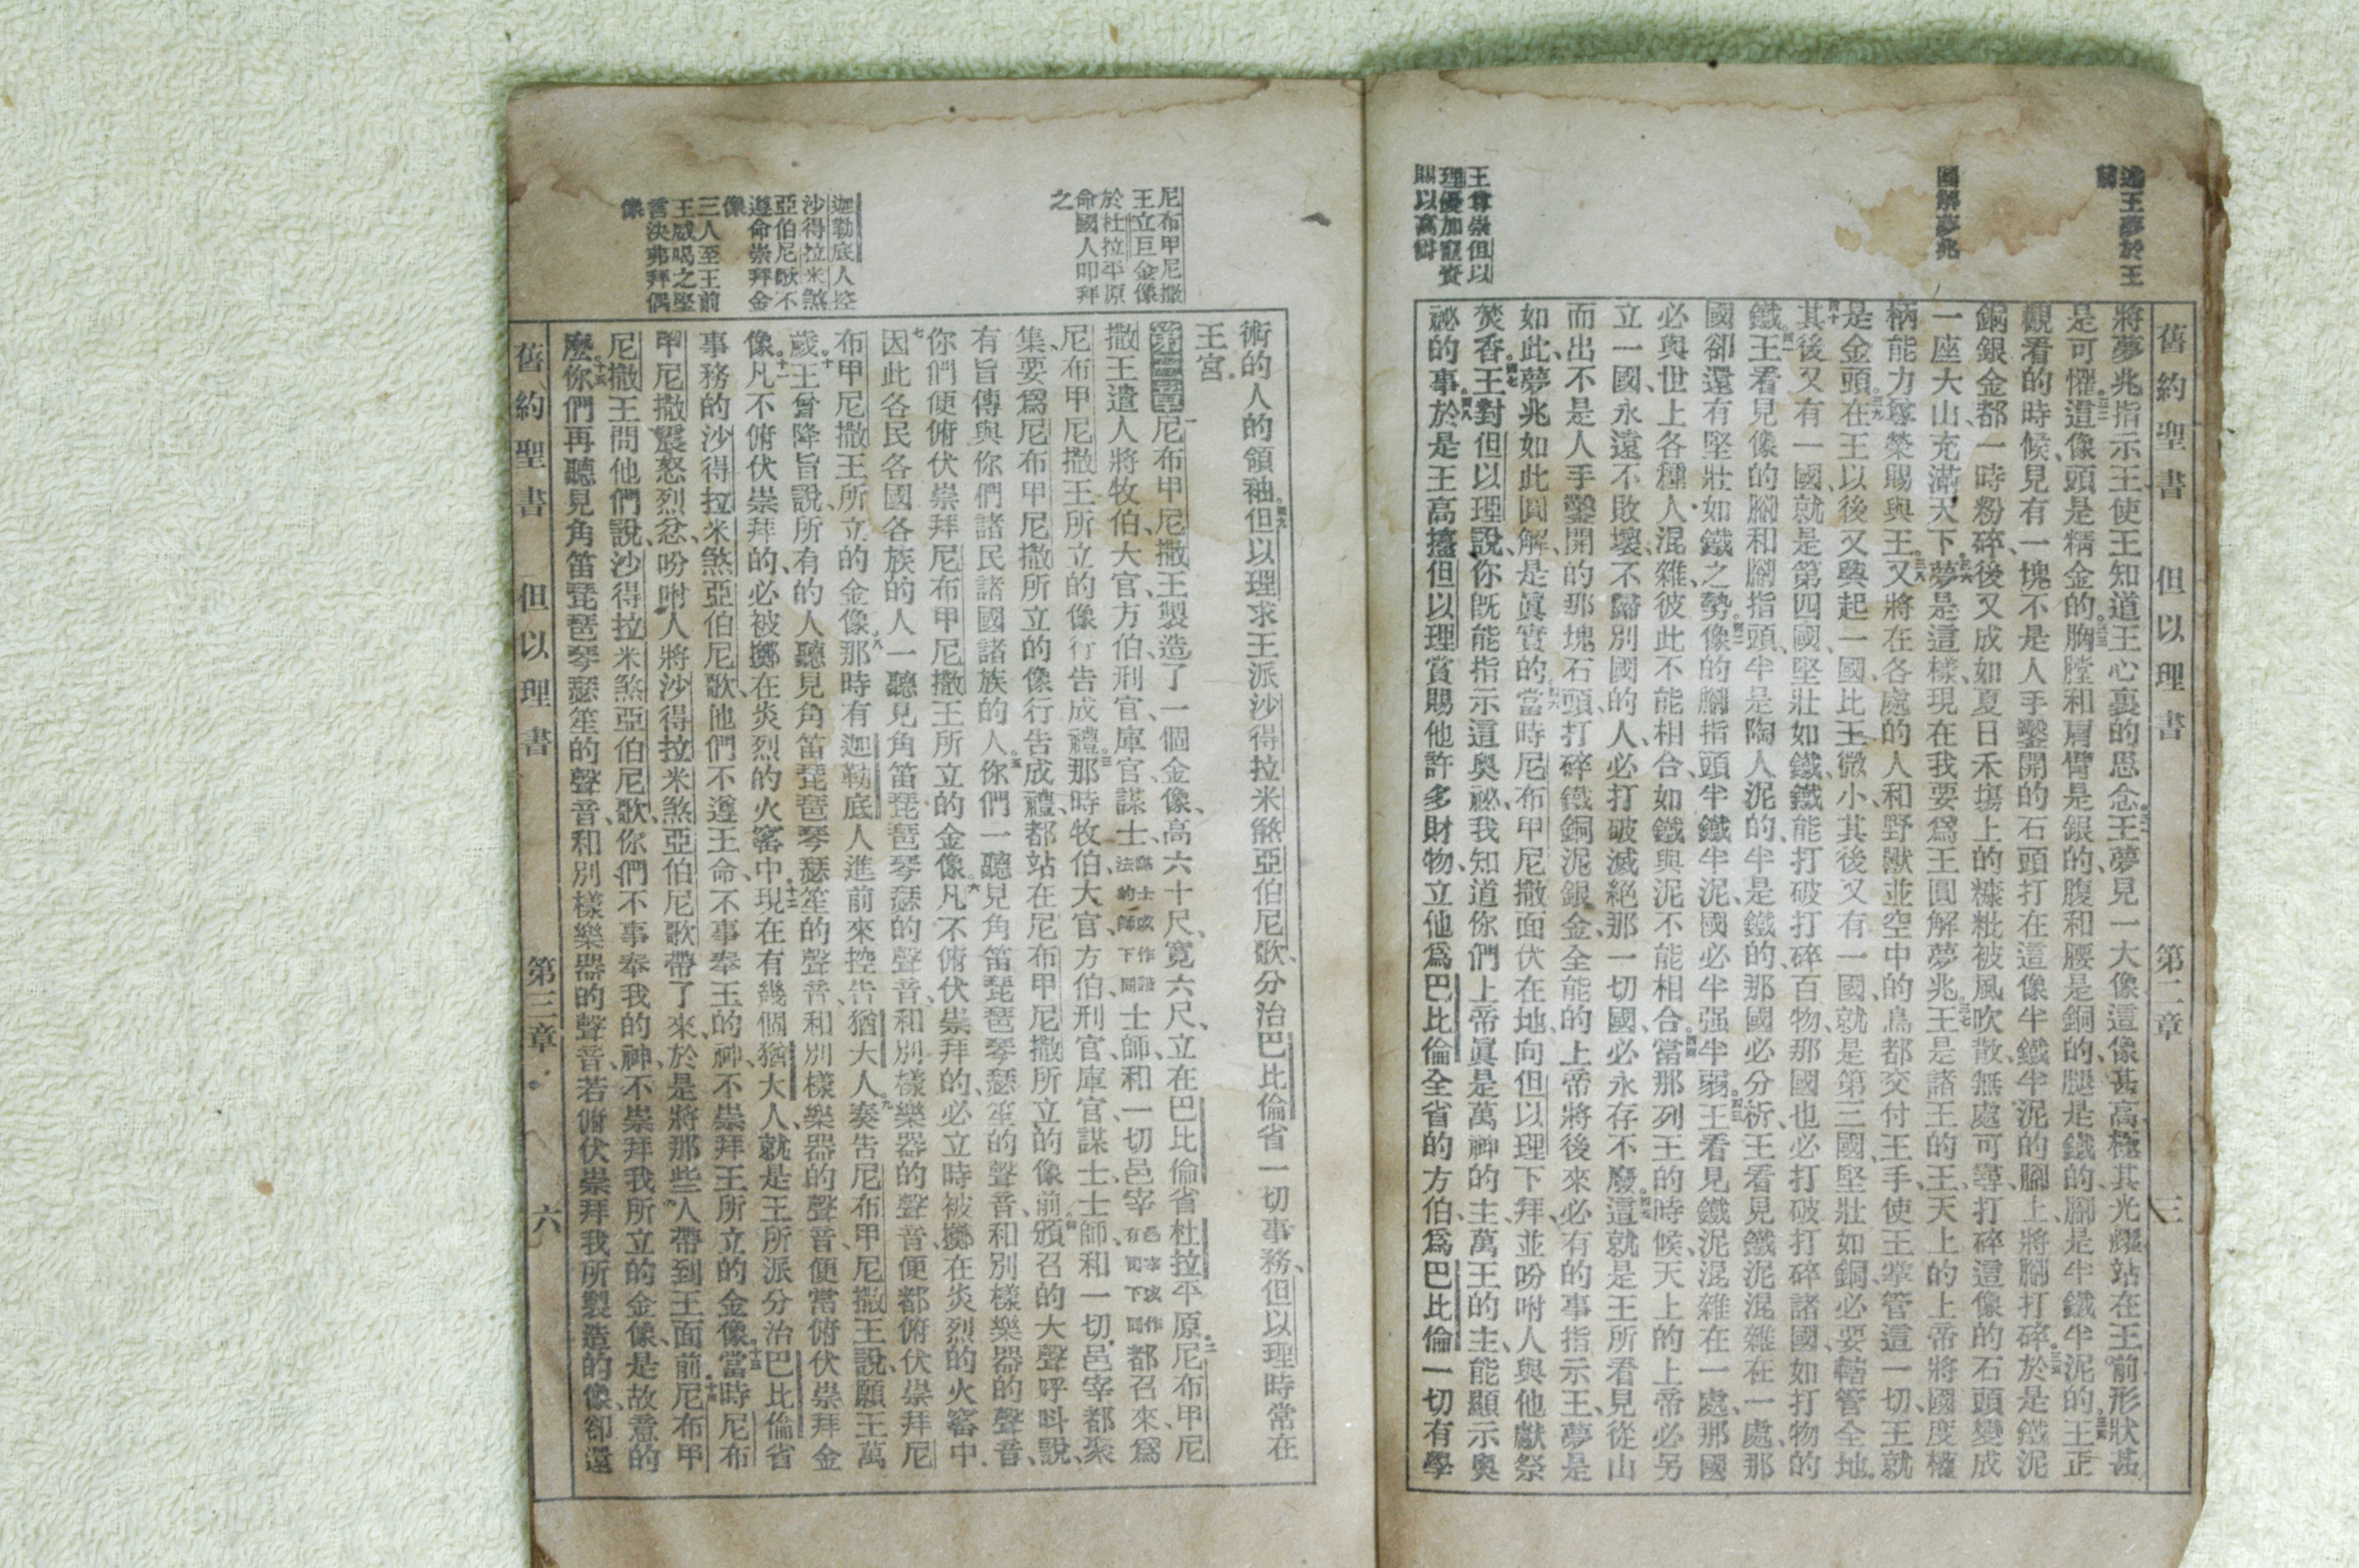 述王夢於王
前
圓解夢兆
王尊崇但以
理優加寵賚
賜以高爵
舊約聖書 但以理書 第二章
將夢兆指示王、使王知道王心裏的思念、三一王夢見一大像、這像甚高、極其光耀、站在王前、形狀甚
是可懼、三二這像頭是精金的、胸膛和肩臂是銀的、腹和腰是銅的、三三腿是鐵的、腳是半鐵半泥的、三四王正
觀看的時候、見有一塊不是人手鑿開的石頭、打在這像半鐵半泥的腳上、將腳打碎、三五於是鐵泥
銅銀金都一時粉碎、後又成如夏日禾塲上的糠粃、被風吹散、無處可尋、打碎這像的石頭變成
一座大山、充滿天下。三六夢是這樣、現在我要爲王圓解夢兆。三七王是諸王的王、天上的上帝將國度權
柄能力尊榮賜與王、三八又將在各處的人和野獸、並空中的鳥、都交付王手、使王掌管這一切、王就
是金頭。三九在王以後又興起一國、比王微小、其後又有一國、就是第三國、堅壯如銅、必要轄管全地。
四十其後又有一國、就是第四國、堅壯如鐵、鐵能打破打碎百物、那國也必打破打碎諸國、如打物的
鐵。四一王看見像的腳和腳指頭、半是陶人泥的、半是鐵的、那國必分析、王看見鐵泥混雜在一處、那
國卻還有堅壯如鐵之勢。四二像的腳指頭半鐵半泥、國必半强半弱。四三王看見鐵泥混雜在一處、那國
必與世上各種人混雜、彼此不能相合、如鐵與泥不能相合。四四當那列王的時候、天上的上帝必另
立一國、永遠不敗壞、不歸別國的人、必打破滅絕那一切國、必永存不廢。四五這就是王所看見從山
而出、不是人手鑿開的那塊石頭、打碎鐵銅泥銀金、全能的上帝將後來必有的事指示王、夢是
如此、夢兆如此圓解、是眞實的。四六當時尼布甲尼撒面伏在地、向但以理下拜、並吩咐人與他獻祭
焚香。四七王對但以理說、你旣能指示這奧祕、我知道你們上帝眞是萬神的主、萬王的主、能顯示奧
祕的事。四八於是王高擡但以理、賞賜他許多財物、立他爲巴比倫全省的方伯、爲巴比倫一切有學
尼布甲尼撒
王立巨金像
於杜拉平原
命國人叩拜
之
迦勒底人控
沙得拉米煞
亞伯尼歌不
遵命崇拜金
像
三人至王前
王威喝之堅
言決弗拜偶
像
術的人的領袖。四九但以理求王派沙得拉米煞亞伯尼歌、分治巴比倫省一切事務、但以理時常在
王宮。
第三章一尼布甲尼撒王製造了一個金像、高六十尺、寬六尺、立在巴比倫省杜拉平原。二尼布甲尼
撒王遣人將牧伯、大官、方伯、刑官、庫官、謀士、謀士或作諳法約師下同士師、和一切邑宰邑宰或作有司下同都召來、爲
尼布甲尼撒王所立的像行告成禮。三那時牧伯、大官、方伯、刑官、庫官、謀士、士師、和一切邑宰都聚
集、要爲尼布甲尼撒所立的像行告成禮、都站在尼布甲尼撒所立的像前。四頒召的大聲呼呌說、
有旨傳與你們諸民諸國諸族的人。五你們一聽見角笛琵琶琴瑟笙的聲音、和別樣樂器的聲音、
你們便俯伏崇拜尼布甲尼撒王所立的金像。六凡不俯伏崇拜的、必立時被擲在炎烈的火窰中。
七因此各民各國各族的人、一聽見角笛琵琶琴瑟的聲音、和別樣樂器的聲音、便都俯伏崇拜尼
布甲尼撒王所立的金像。八那時有迦勒底人進前來控告猶大人。九奏告尼布甲尼撒王說、願王萬
歲。十王曾降旨說、所有的人聽見角笛琵琶琴瑟笙的聲音、和別樣樂器的聲音、便當俯伏崇拜金
像。十一凡不俯伏崇拜的、必被擲在炎烈的火窰中。十二現在有幾個猶大人、就是王所派分治巴比倫省
事務的沙得拉米煞亞伯尼歌、他們不遵王命、不事奉王的神、不崇拜王所立的金像。十三當時尼布
甲尼撒震怒烈忿、吩咐人將沙得拉米煞亞伯尼歌帶了來、於是將那些人帶到王面前。十四尼布甲
尼撒王問他們說、沙得拉米煞亞伯尼歌、你們不事奉我的神、不崇拜我所立的金像、是故意的
麼。十五你們再聽見角笛琵琶琴瑟笙的聲音、和別樣樂器的聲音、若俯伏崇拜我所製造的像、卻還
舊約聖書 但以理書 第三章 六